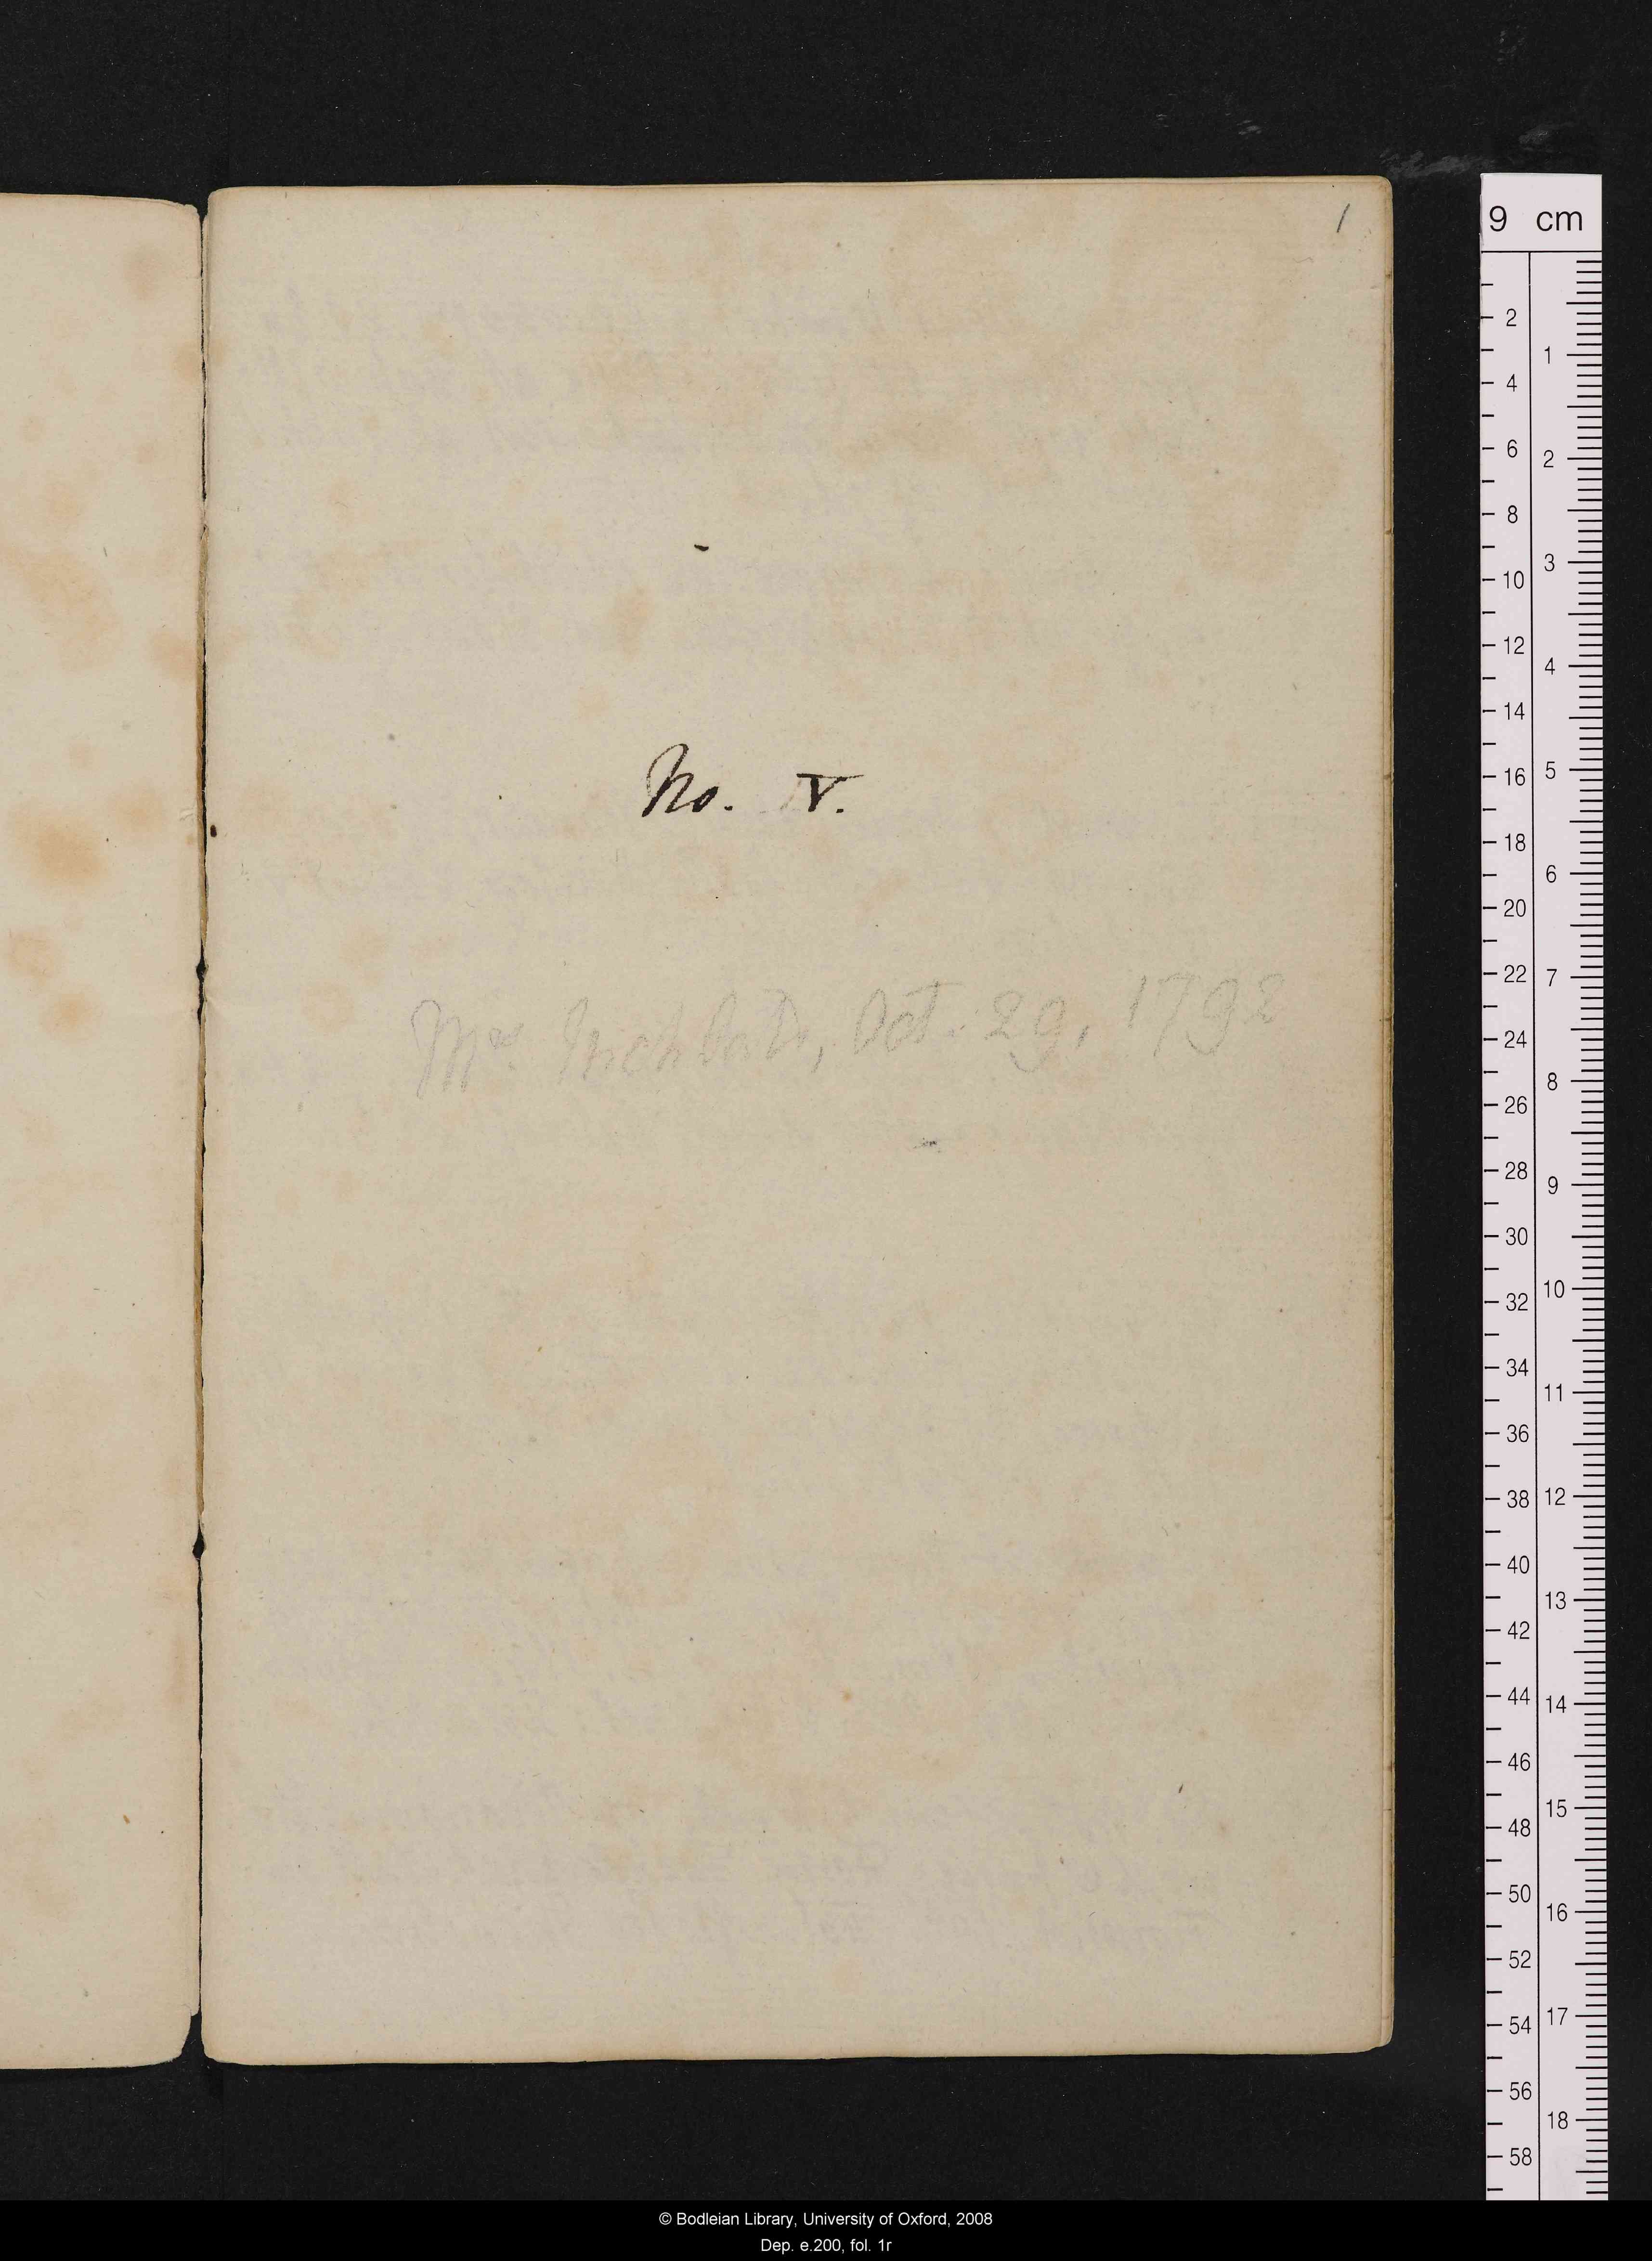 1
No. V.
Mrs Inchbald, Oct. 29, 1792
9 cm
2
4
6
8
10
12
14
16
18
20
22
24
26
28
30
32
34
36
38
40
42
44
46
48
50
52
54
56
58
1
2
3
4
5
6
7
8
9
10
11
12
13
14
15
16
17
18
© Bodleian Library, University of Oxford, 2008
Dep. e.200, fol. 1r